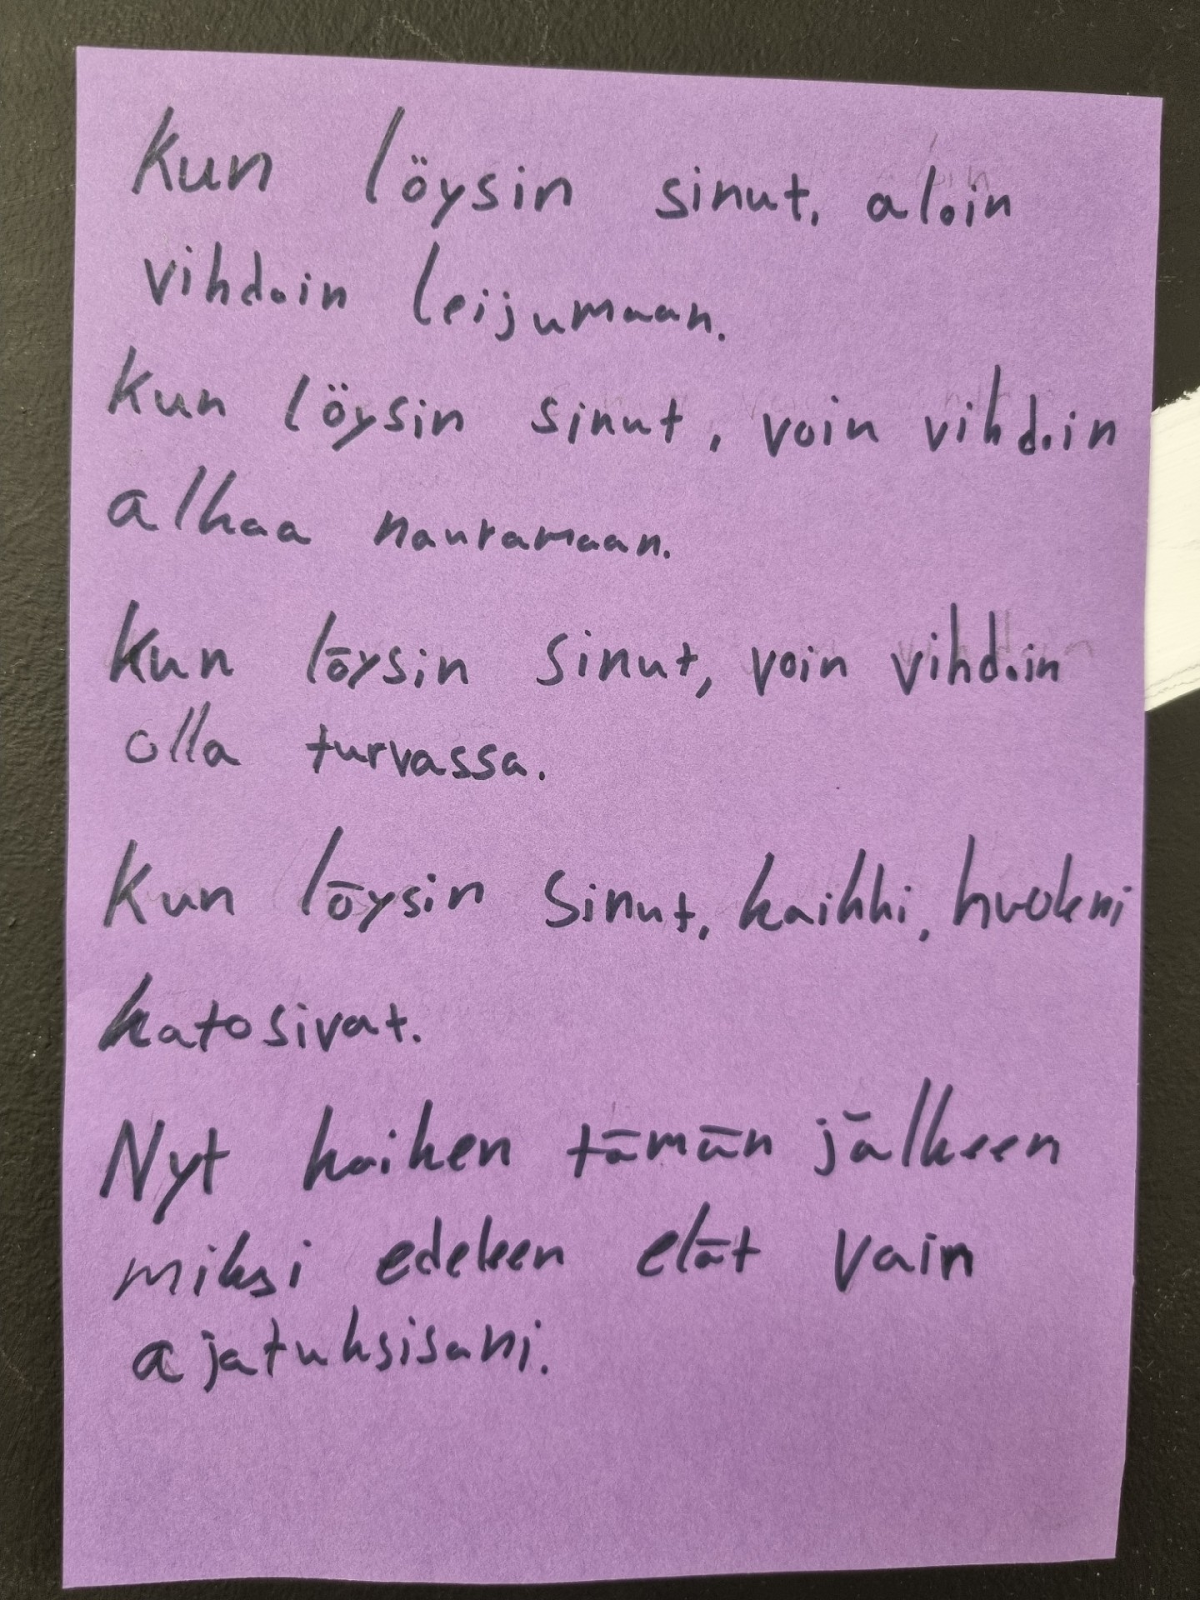 Kun löysin sinut, aloin
vihdoin leijumaan.
Kun löysin sinut, voin vihdoin
alkaa nauramaan.
Kun löysin sinut, voin vihdoin
olla turvassa.
Kun löysin sinut, kaikki, huoleni
katosivat.
Nyt kaiken tämän jälkeen
miksi edelleen elät vain
ajatuksisani.